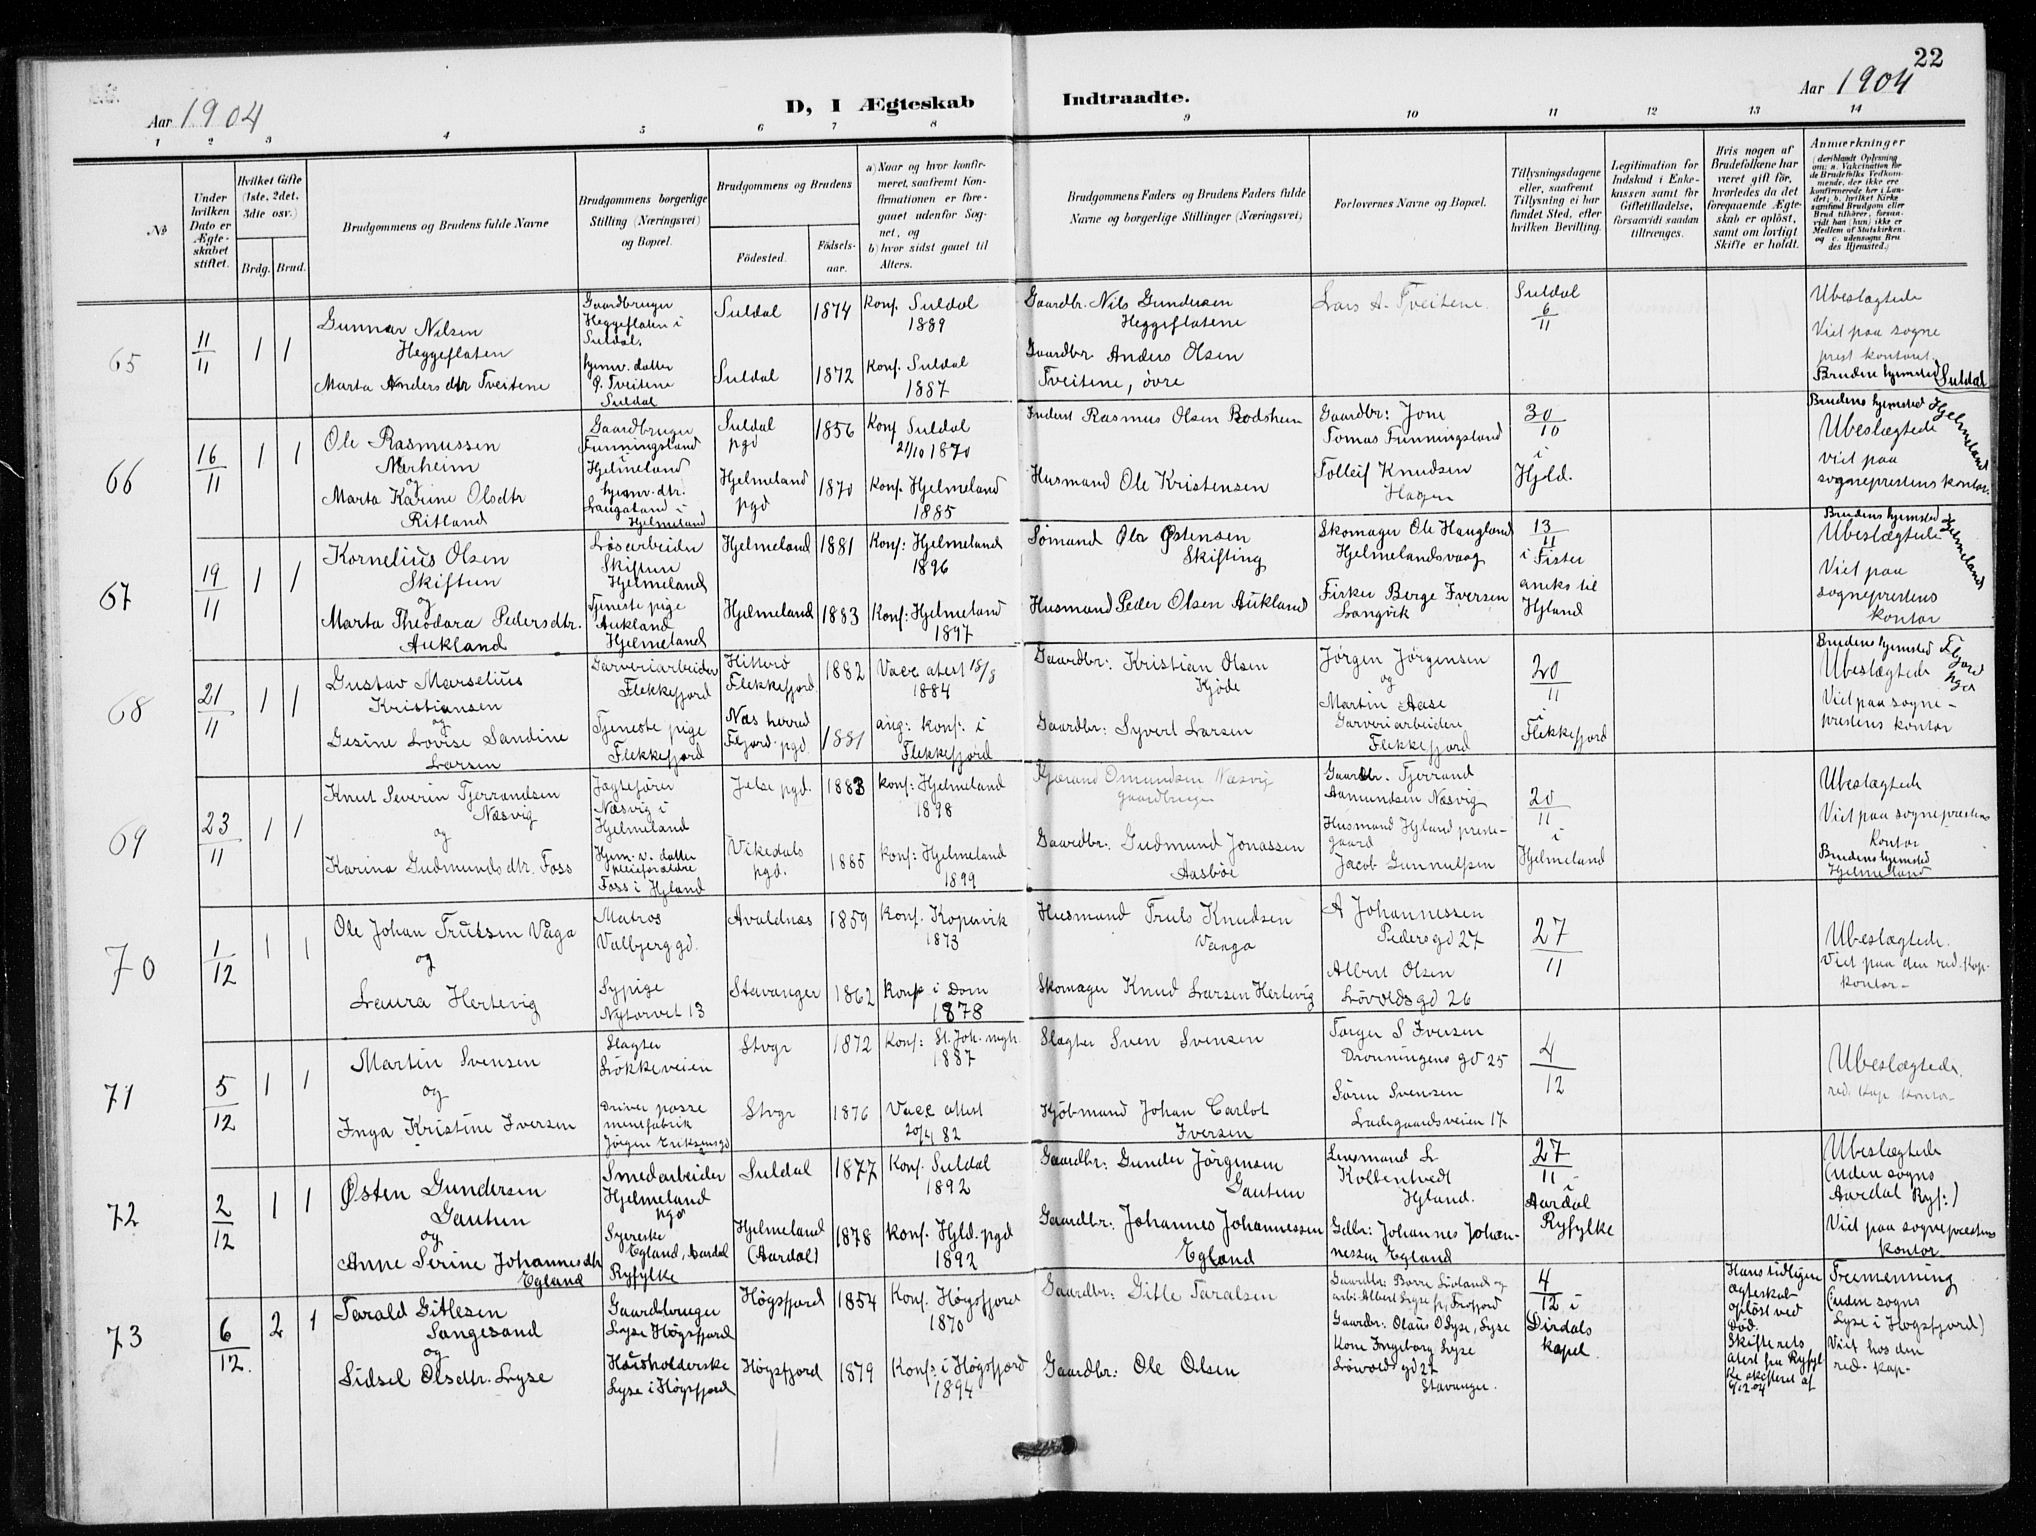 22
Aar 1904
D, I Ægteskab Indtraadte.
Aar 1904
1 2 3 4 5 6 7 8 9 10 11 12 13 14
No
Under hvilken Dato er Ægteskabet stiftet.
Hvilket Gifte (1ste, 2det, 3die osv.)
Brdg. Brud.
Brudgommens og Brudens fulde Navne
Brudgommens borgerlige Stilling (Næringsvei) og Bopæl.
Brudgommens og Brudens
Födested. Födselsaar.
a) Naar og hvor konfirmeret, saafremt Konfirmationen er foregaaet udenfor Sognet, og
b) hvor sidst gaaet til Alters.
Brudgommens Faders og Brudens Faders fulde Navne og borgerlige Stillinger (Næringsvei)
Forlovernes Navne og Bopæl.
Tillysningsdagene eller, saafremt Tillysning ei har fundet Sted, efter hvilken Bevilling.
Legitimation for Indskud i Enkekassen samt for Giftetilladelse, forsaavidt saadan tiltrænges.
Hvis nogen af Brudefolkene har været gift för, hvorledes da det foregaaende Ægteskab er oplöst, samt om lovligt Skifte er holdt.
Anmærkninger
(deriblandt Oplysning om: a. Vakcination for de Brudefolks Vedkommende, der ikke ere konfirmerede her i Landet; b. hvilket Kirkesamfund Brudgom eller Brud tilhörer, forsaavidt han (hun) ikke er Medlem af Statskirken, og c. udensogns Brudes Hjemsted.)
65
11/11
1 1
Gunnar Nilsen
Heggeflaten
Marta Andersdtr Tveitene
Gaardbruger
Heggeflaten i
Suldal.
hjemv. datter
Tveitene
Suldal
Suldal 1874
Suldal 1872
Konf. Suldal
1889
Konf. Suldal
1887
Gaardbr. Nils Gundersen
Heggeflatene
Gaardbr Anders Olsen
Tveitene, øvre
Lars A. Tveitene.
Suldal
6/11
Ubeslægtede
Viet paa sogne
prest kontoret.
Brudens hjemsted Suldal
66
16/11
1 1
Ole Rasmussen
Nerheim
og
Marta Karine Olsdtr
Ritland
Gaardbruger
Funningsland
i
Hjelmeland
hjemv. dtr.
Laugaland i
Hjelmeland
Suldal
pgd
1856
Hjelmeland
pgd
1870
Konf Suldal
21/10 1870
Konf. Hjelmeland
1885
Inderst Rasmus Olsen Rodshem
Husmand Ole Kristensen
Gaardbr: Jone
Tomas Funningsland
Tolleif Knudsen
Hagen
30/10
i
Hjld.
Brudens hjemsted Hjelmeland
Ubeslægtede
viet paa
sogneprestens kontor.
67
19/11
1 1
Kornelius Olsen
Skiftun
og
Marta Theodora Pedersdtr.
Aukland
Løsarbeider
Skiftun
Hjelmeland
Tjenestepige
Aukland
Hjelmeland
Hjelmeland 1881
Hjelmeland 1883
Konf: Hjelmeland
1896
Konf: Hjelmeland
1897
Sømand Ola Østensen
Skifting
Husmand Peder Olsen Aukland
Skomager Ole Haugland
Hjelmelandsvaag
Fisker Berge Iversen
Langvik
13/11
i Fister
aneks til
Hjland
Brudens hjemsted Hjelmeland
Ubeslægtede
Viet paa
sogneprestens
kontor
68
21/11
1 1
Gustav Marselius
Kristiansen
og
Gesine Lovise Sandine
Larsen
Garveriarbeider
Flekkefjord
Tjenestepige
Flekkefjord
Hitterø
Flekkefjord.
1882
Næs herred
Fljord. pgd.
1881
Vacc atest 18/8
1884
ang: konf: i
Flekkefjord
Gaardbr: Kristian Olsen
Kjøde
Gaardbr: Syvert Larsen
Jörgen Jörgensen
og
Martin Aase
Garveriarbeidere
Flekkefjord
20/11
i
Flekkefjord
Brudens hjemsted Fljord pgd
Ubeslægtede
Viet paa sogne-
prestens kontor
69
23/11
1 1
Knut Severin Tjerrandsen
Næsvig
og
Karina Gudmundsdtr. Foss
Jagtefører
Næsvig i
Hjelmeland
Hjem. v. datter
pleieforældre
Foss i Hjland
Jelse pgd. 1883
Vikedals
pgd.
1885
konf: Hjelmeland
1898
Konf: Hjelmeland
1899
Tjærand Omundsen Næsvig
gaardbruger
Gaardbr: Gudmund Jonassen
Aasböe
Gaardbr. Tjerrand
Aamundsen Næsvig
Husmand Hjland preste-
gaard
Jacob Gunnulfsen
20/11
i
Hjelmeland
Ubeslægtede
Viet paa sogneprestens
Kontor
Brudens hjemsted
Hjelmeland
70
1/12
1 1
Ole Johan Trulssen Våga
og
Laura Hertevig
Matros
Valbjerggd.
Sypige
Nytorvet 13
Avaldnæs 1859
Stavanger 1862
Konf. Kopervik
1873
Konf i Dom
1878
Husmand Truls Knudsen
Vaaga
Skomager Knud Larsen Hertevig
A Johannessen
Pedersgd 27
Albert Olsen
Lövoldsgd 26
27/11
Ubeslægtede.
Viet paa den red. Kap.
kontor-
71
5/12
1 1
Martin Svensen
og
Inga Kristine Iversen
Slagter
Lökkeveien
Driver posse
mentfabrik
Jörgen Eriksensgd
Stvgr 1872
Stvgr 1876
Konf: St. Joh. mgh.
1887
Vacc attest
20/4 82
Slagter Sven Svensen
Kjöbmand Johan Carlot
Iversen
Torger S Iversen
Dronningens gd 25
Sören Svensen
Ladegaardsveien 17
4/12
Ubeslægtede.
red. kap kontor
72
2/12
1 1
Østen Gundersen
Gautun
og
Anne Serine Johannesdtr
Egland
Smedarbeider
Hjelmeland
pgd
Syerske
Egland, Aardal
Ryfylke
Suldal 1877
Hjelmeland
(Aardal)
1878
Konf. Suldal
1892
Konf. Hjld. pgd
1892
Gaardbr: Gunder Jörgensen
Gautun
Gaardbr: Johannes Johannessen
Egland
Lensmand L
Koltentvedt
Hjland.
Gdbr: Johannes Johan-
nessen Egland
27/11
i
Aardal
Ryfylke
Ubeslægtede
(uden sogns
Aardal Ryf:)
Viet paa sogneprestens
kontor
73
6/12.
2 1
Tarald Gitlesen
Sangesand
og
Sidsel Olsdtr. Lyse
Gaardbruger
Lyse Högsfjord
Husholderske
Lyse i Högsfjord
Högsfjord 1854
Högsfjord 1879
Konf. Högsfjord
1870
Konf: i Högsfjord
1894
Gaardbr: Gitle Taralsen
Gaardbr: Ole Olsen
Gaardbr: Borre Lioland og
arb: Albert Lyse fr. Frafjord
Gaardbr: Olaus O Lyse, Lyse
Kone Ingeborg Lyse
Lövolds gd 27
Stavanger.
4/12 i
Dirdals
kapel.
Hans tidligere
ægteskab
oplöst ved
död.
Skifterets
atest fra Ryfyl
ke skifteret af
2/12 04
Tremenning
(uden sogns
Lyse i Høgsfjord)
Viet hos den
red. kap.